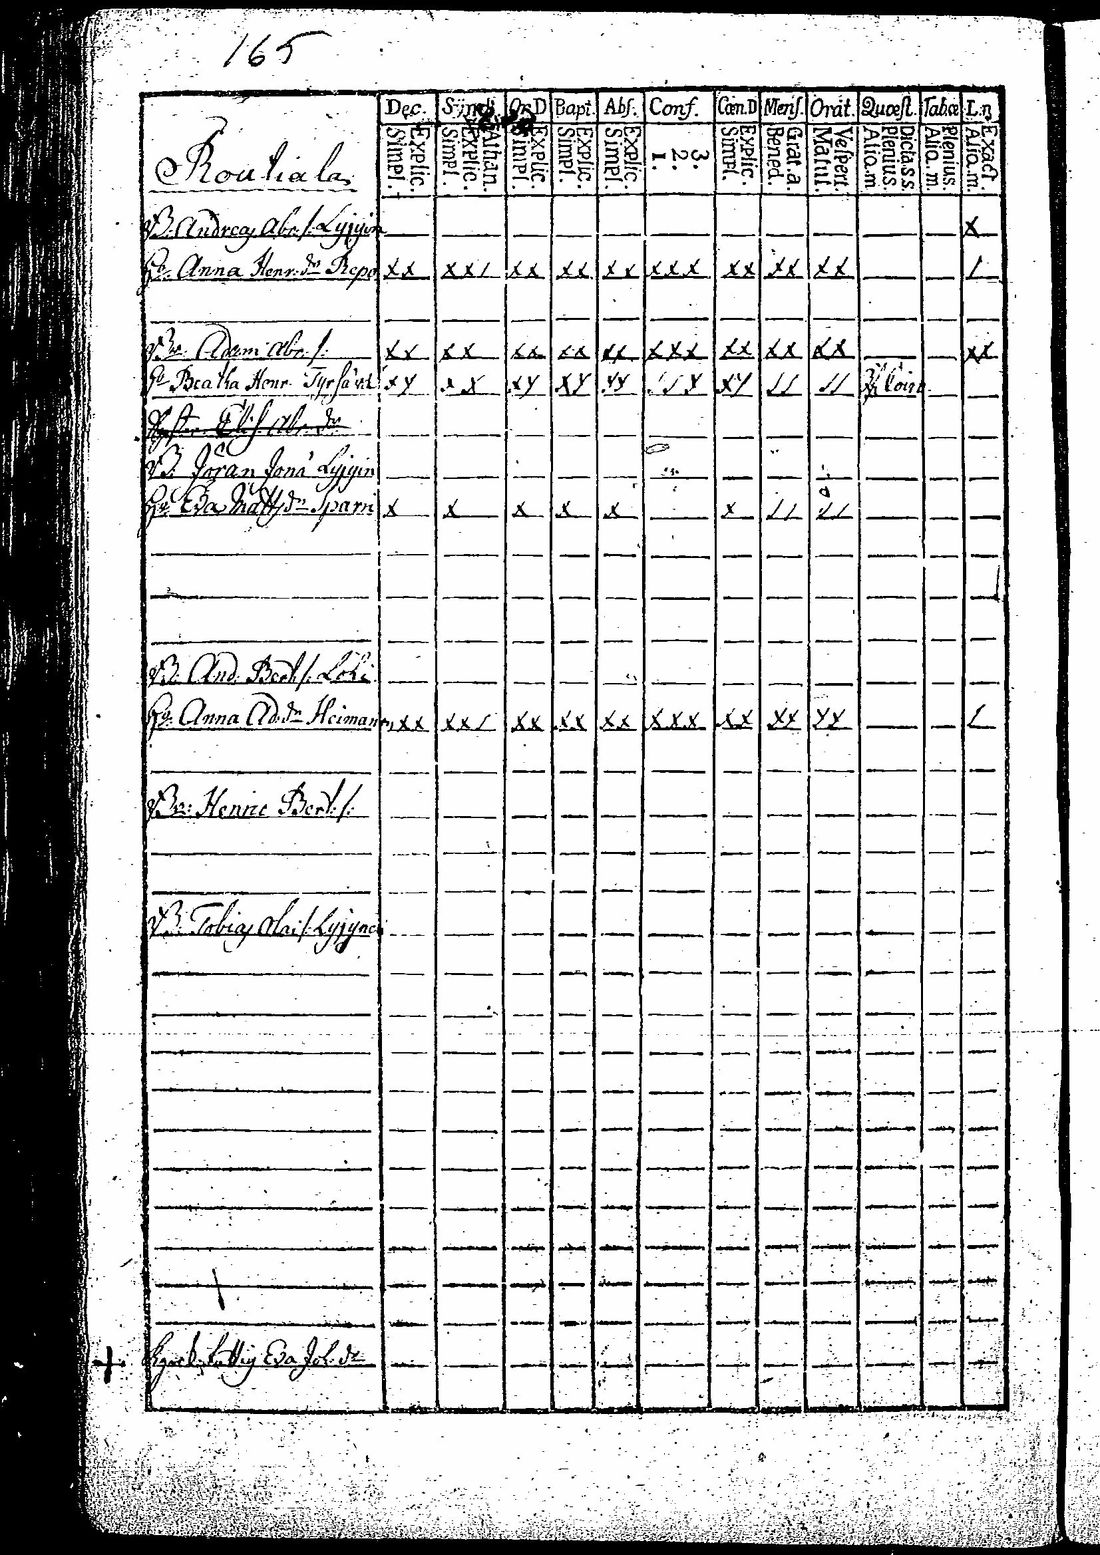 165
Dec. Symb. Or.D Bapt. Abs. Conf. Cœn.D Mens. Orat. Quæst. Tabæ L.n
Explic. Simpl. Athan. Explic. Simpl. Explic. Simpl. Explic. Simpl. Explic. Simpl. 3. 2. 1. Explic. Simpl. Grat.a. Bened. Vespert. Matut. Dicta s.s. Plenius. Aliq.m Plenius. Aliq.m. Exact. Aliq.m.
Routiala
B. Andreas Abr.s. Lyjyin x
Hu. Anna Henr. dr Repo xx xx/ xx xx xx xxx xx xx xx /
Br. Adam Abr.s. xx xx xx xx xx xxx xx xx xx xx
Hu Beatha Henr. xy xx xy xy yy //y xy // //
Elis Abr. dr
B. Jöran Jona Lyjyin
Hu. Eva Matts dr Sparri x x x x x x // //
B. And. Bert.s.
Hu. Anna Ad. dr Heiman xx xx/ xx xx xx xxx xx xx yy /
Br: Henric Bert.s.
B. Tobias Olai s. Lyjyin
+ Eva Joh. dr